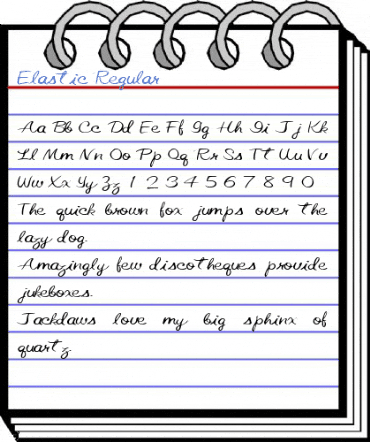 Elastic Regular
Aa Bb Cc Dd Ee Ff Gg Hh Ii Jj Kk
Ll Mm Nn Oo Pp Qq Rr Ss Tt Uu Vv
Ww Xx Yy Zz 1 2 3 4 5 6 7 8 9 0
The quick brown fox jumps over the
lazy dog.
Amazingly few discotheques provide
jukeboxes.
Jackdaws love my big sphinx of
quartz.